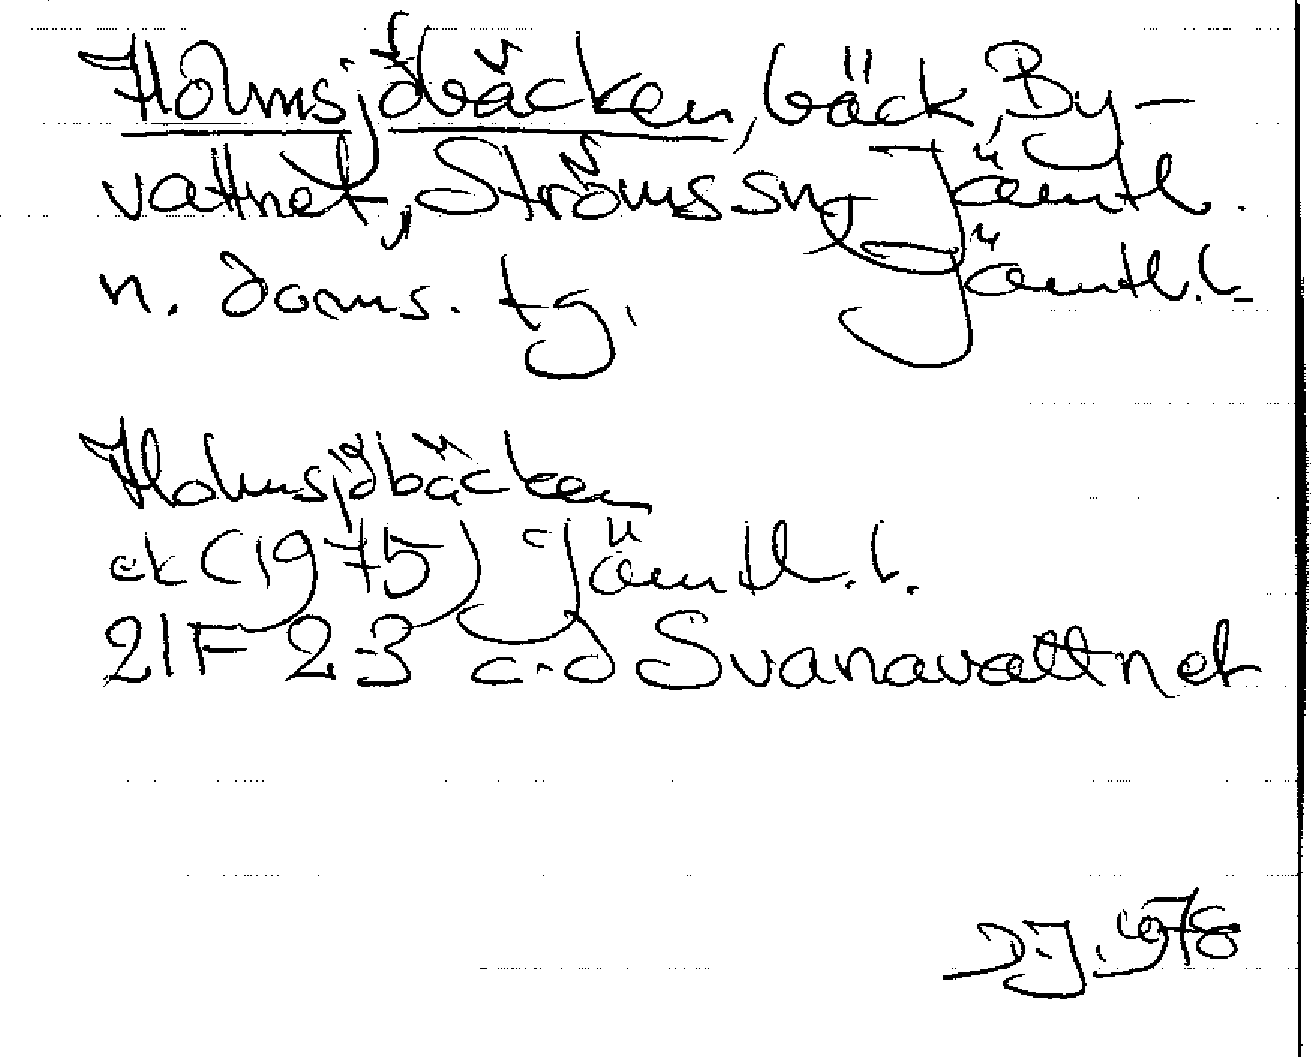 Holmsjöbäcken, bäck, By-
vattnet, Ströms sn, Jämtl.
n. doms. tg. Jämtl. l.
Holmsjöbäcken
ek (1975) Jämtl. l.
21F 2-3 c-d Svanavattnet
D.J. 1978